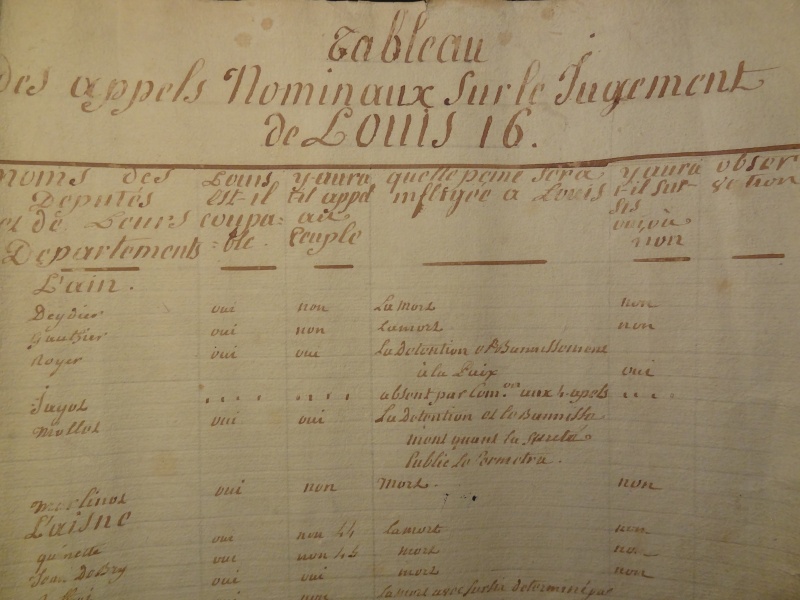 Tableau
des appels Nominaux sur le Jugement
de LOUIS 16.
noms des Louis y aura quelle peine sera y aura obser
Députés est-il t-il appel infligée a Louis t-il sur- vation
et de Leurs coupa= au sis
Departements =ble. Peuple oui, où
non
L'ain.
Deydier oui non La mort non
Gauthier oui non La mort non
Royer oui oui La Détention et Bannissement
à la Paix oui
Jagot .... .... absent par Com.on aux 4 apels ....
Mollet oui oui La Détention et le Bannisse
ment quant la sureté
Public le Permetra.
Merlinot oui non Mort. non
L'aisne
quinete oui non 44 la mort non
Jean DeBry oui non 44 mort non
oui oui mort non
non La mort avec sursis determiné par